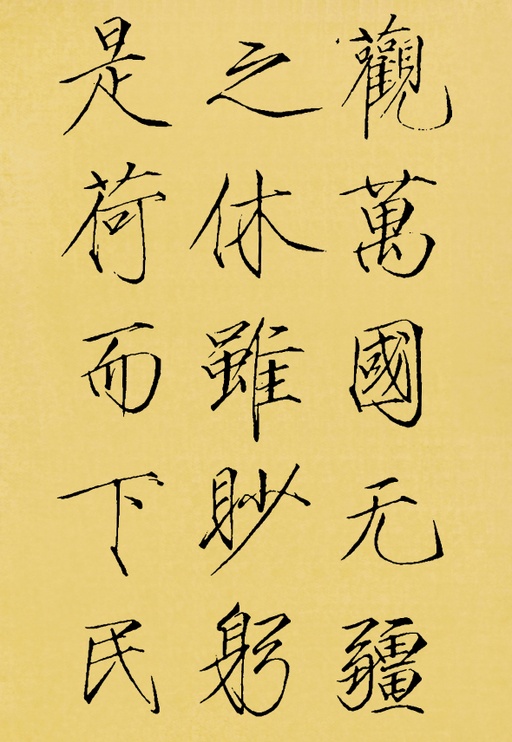 觀萬國无疆
之休雖眇躬
是荷而下民